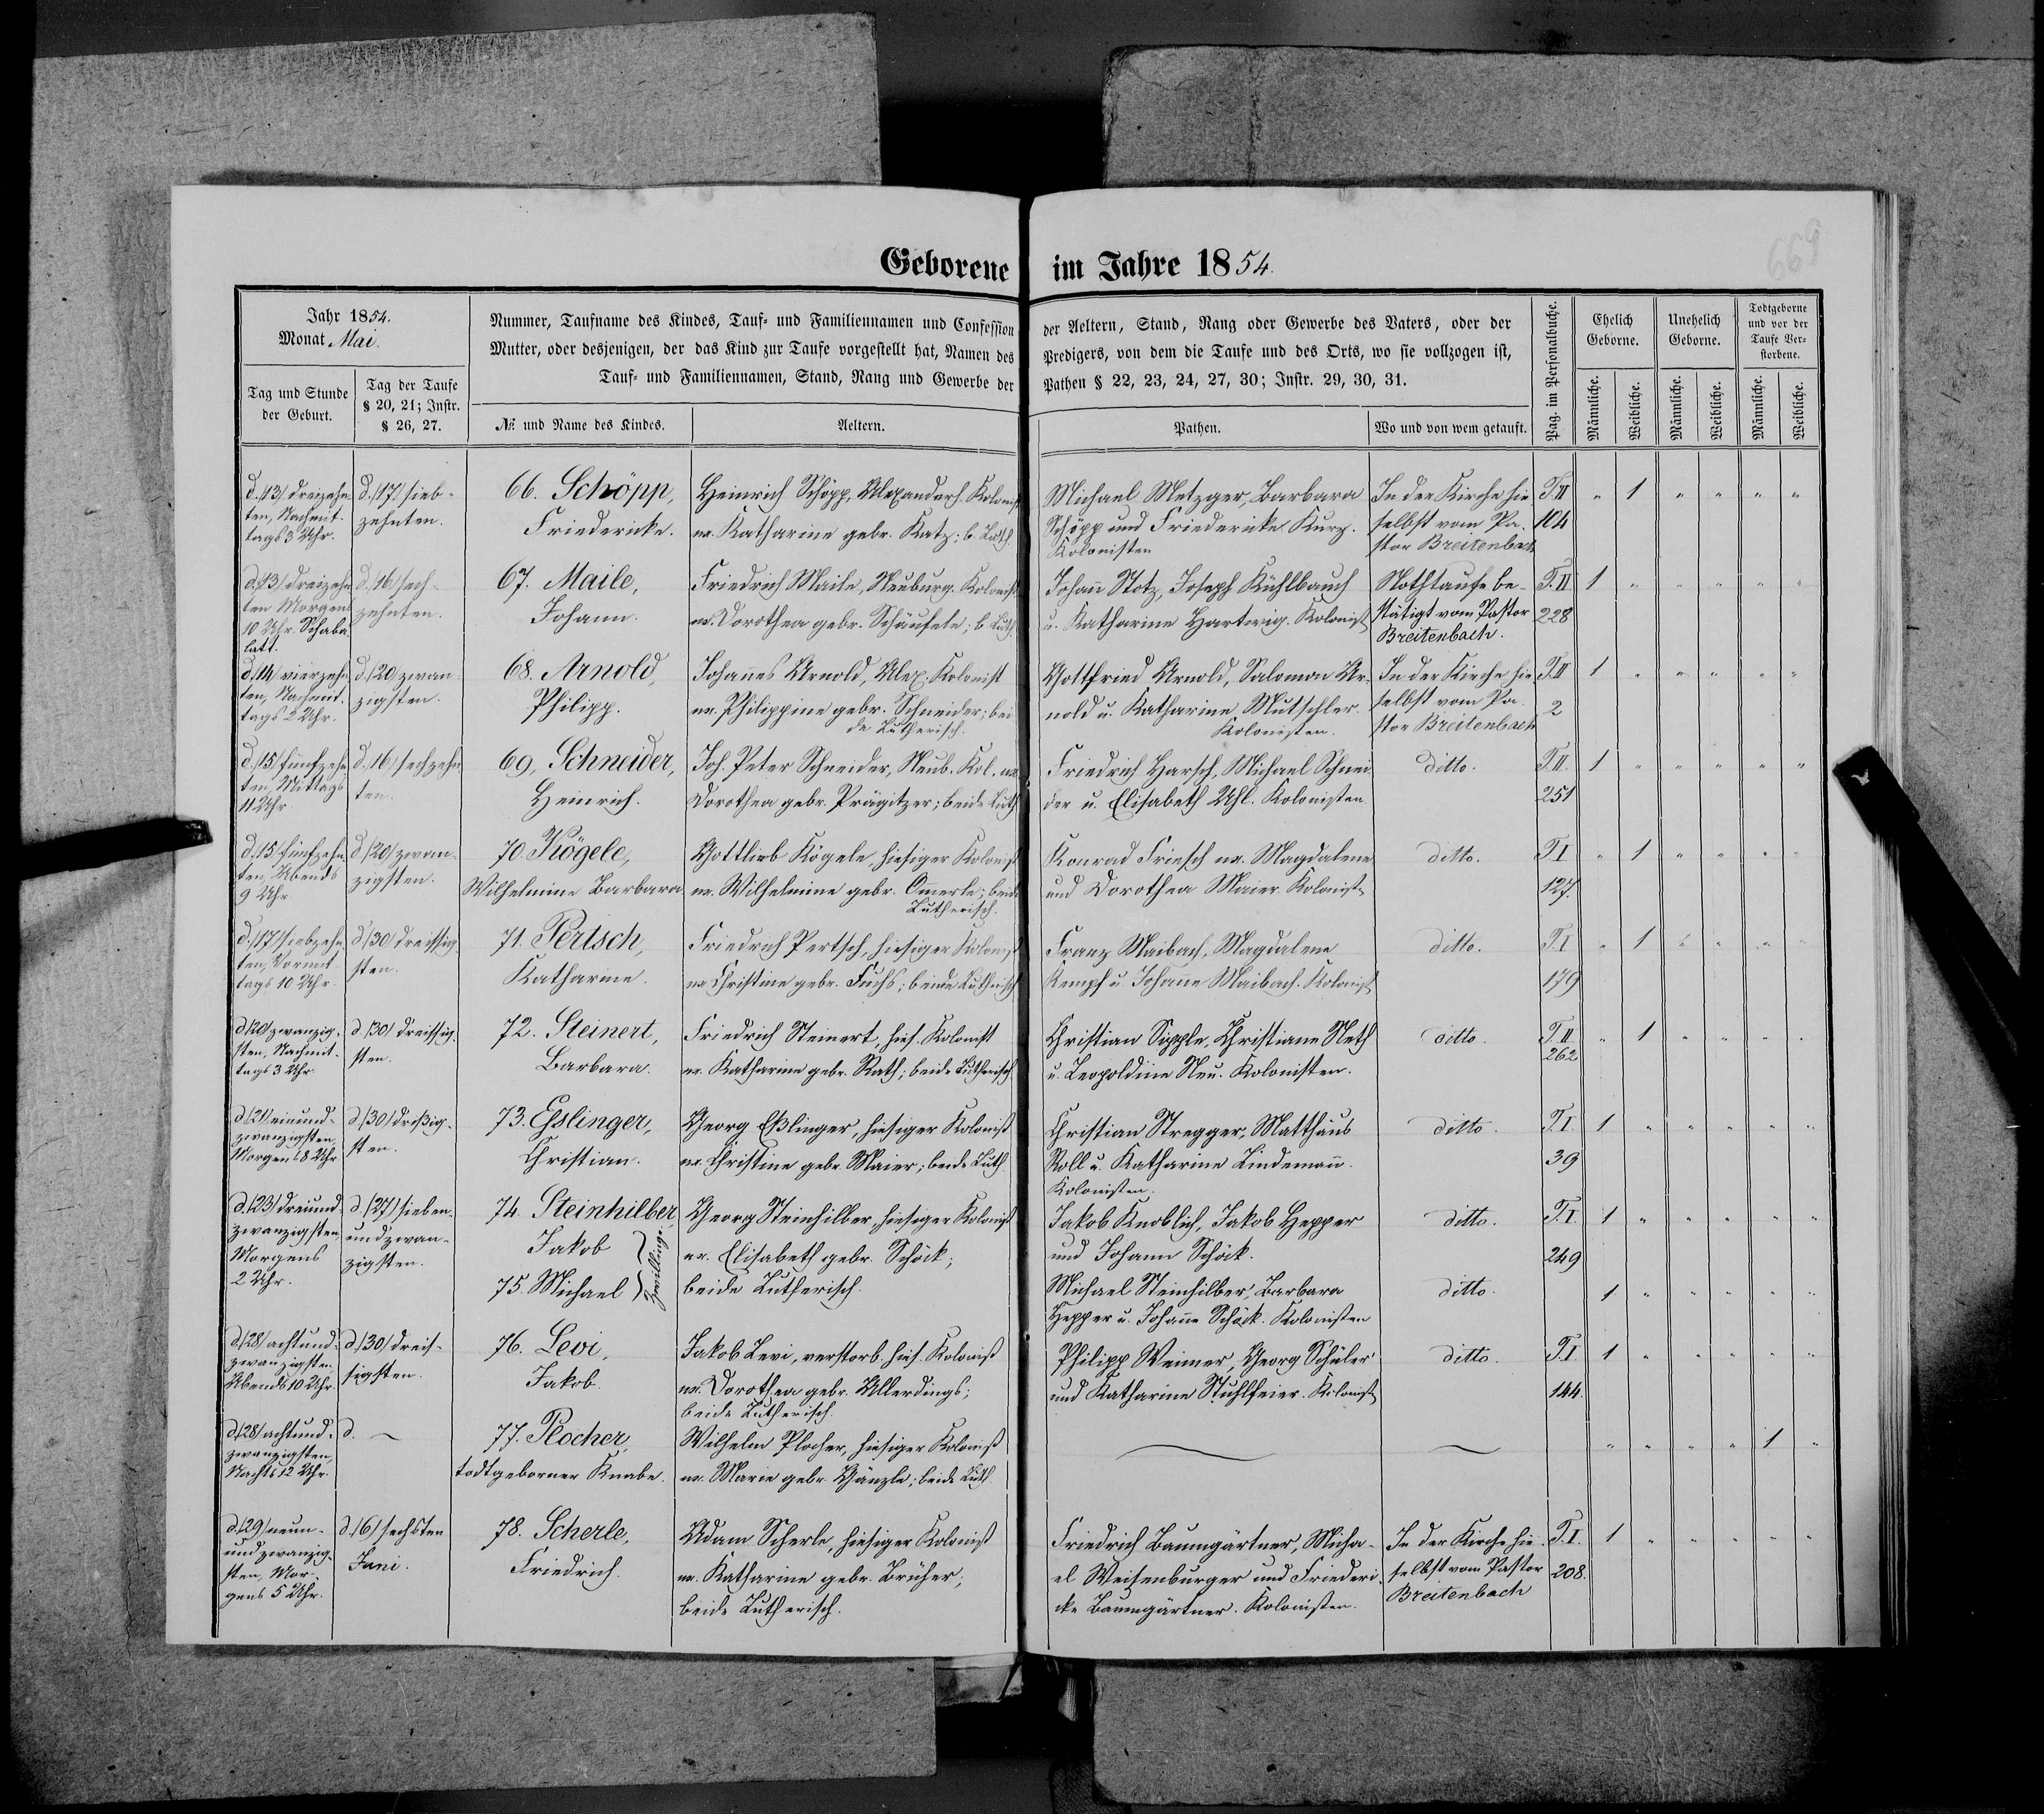 669
Geborene im Jahre 1854.
Jahr 1854.
Monat Mai.
Tag und Stunde der Geburt.
Tag der Taufe § 20, 21; Instr. § 26, 27.
Nummer, Taufname des Kindes, Tauf- und Familiennamen und Confession der Aeltern, Stand, Rang oder Gewerbe des Vaters, oder der
Mutter, oder desjenigen, der das Kind zur Taufe vorgestellt hat, Namen des Predigers, von dem die Taufe und des Orts, wo sie vollzogen ist,
Tauf- und Familiennamen, Stand, Rang und Gewerbe der Pathen § 22, 23, 24, 27, 30; Instr. 29, 30, 31.
№ und Name des Kindes.
Aeltern.
Pathen.
Wo und von wem getauft.
Pag. im Personalbuche.
Ehelich Geborne.
Unehelich Geborne.
Todtgeborne und vor der Taufe Verstorbene.
Männliche. Weibliche. Männliche. Weibliche. Männliche. Weibliche.
d. /13/ dreizehn-
ten, Nachmit-
tags 3 Uhr.
d. /17/ sieb-
zehnten.
66. Schöpp,
Friedericke.
Heinrich Schöpp, Alexanderh. Kolonist
ux. Katharine gebr. Katz; b. Luth.
Michael Metzger, Barbara
Schöpp und Friedericke Kurz.
Kolonisten
In der Kirche hie-
selbst vom Pa-
stor Breitenbach
T. II
104
" 1 " " " "
d. /13/ dreizehn-
ten Morgens
10 Uhr. Schaba
latt.
d. /16/ sech-
zehnten.
67. Maile,
Johann.
Friedrich Maile, Neuburg. Kolonist
ux. Dorothea gebr. Schäufele; b. Luth.
Johann Stotz, Joseph Kühlbauch
u. Katharine Hartwig. Kolonist
Nothtaufe be-
stätigt vom Pastor
Breitenbach.
T. II
228
1 " " " " "
d. /14/ vierzehn-
ten, Nachmit-
tags 2 Uhr.
d. /20/ zwan-
zigsten.
68. Arnold,
Philipp.
Johannes Arnold, Alex. Kolonist
ux. Philippine gebr. Schneider; bei
de Lutherisch.
Gottfried Arnold, Salomon Ar-
nold u. Katharine Mutschler.
Kolonisten.
In der Kirche hie-
selbst vom Pa-
stor Breitenbach
T. II
2
1 " " " " "
d. /15/ fünfzehn-
ten, Mittags
11 Uhr
d. 16/ sechzehn-
ten.
69. Schneider,
Heinrich.
Joh. Peter Schneider, Neub. Kol. ux.
Dorothea gebr. Prägitzer; beide Luth
Friedrich Harsch, Michael Schnei-
der u. Elisabeth Uhl. Kolonisten.
ditto.
T. II.
251
1 " " " " "
d. /15/ fünfzehn-
ten, Abends
9 Uhr
d. /20/ zwan-
zigsten.
70. Kögele,
Wilhelmine Barbara
Gottlieb Kögele, hiesiger Kolonist
ux. Wilhelmine gebr. Ommerle; beide
Lutherisch.
Konrad Friesch ux. Magdalene
und Dorothea Maier. Kolonist
ditto.
T. I
127.
" 1 " " " "
d. /17/ siebzehn-
ten, Vormit-
tags 10 Uhr.
d. /30/ dreissig-
sten.
71. Pertsch,
Katharine.
Friedrich Pertsch, hiesiger Kolonist
ux. Christine gebr. Fuchs; beide Lutherisch
Franz Maibach, Magdalene
Kempf u. Johanne Maibach. Kolonist
ditto.
T. I
179
" 1 " " " "
d. /20/ zwanzig-
sten, Nachmit-
tags 3 Uhr.
d. /30/ dreissig-
sten.
72. Steinert,
Barbara.
Friedrich Steinert, hies. Kolonist
ux. Katharine gebr. Rath; beide Lutherisch
Christian Sipple, Christiane Neth
u. Leopoldine Neu. Kolonisten.
ditto.
T. II.
262
" 1 " " " "
d. /21/ einund-
zwanzigsten,
Morgens 8 Uhr
d. /30/ dreißig-
sten.
73. Esslinger,
Christian.
Georg Eßlinger, hiesiger Kolonist
ux. Christine gebr. Maier; beide Luth
Christian Stregger, Matthäus
Roll u. Katharine Lindemann.
Kolonisten.
ditto.
T. I.
39
1 " " " " "
d. /23/ dreiund-
zwanzigsten
Morgens
2 Uhr.
d. /27/ sieben-
undzwan-
zigsten.
74. Steinhilber
Jakob
75. Michael
Zwillinge.
Georg Steinhilber, hiesiger Kolonist
ux. Elisabeth gebr. Schöck;
beide Lutherisch.
Jakob Knoblich, Jakob Hepper
und Johann Schöck.
Michael Steinhilber, Barbara
Hepper u. Johanne Schöck. Kolonisten
ditto.
ditto.
T. I.
249
1 " " " " "
1 " " " " "
d. /28/ achtund-
zwanzigsten
Abends 10 Uhr.
d. /30/ dreis-
sigsten.
76. Levi,
Jakob.
Jakob Levi, verstorb. hies. Kolonist
ux. Dorothea gebr. Allerdings;
beide Lutherisch.
Philipp Weimer, Georg Schüler
und Katharine Stuhlfeier. Kolonist
ditto.
T. I.
144.
1 " " " " "
d. /28/ achtund-
zwanzigsten,
Nachts 12 Uhr.
d. —
77. Plocher,
todtgeborner Knabe.
Wilhelm Plocher, hiesiger Kolonist
ux. Marie gebr. Gänzle; beide Luth.
" " " " 1 "
d. /29/ neun-
und zwanzig-
sten, Mor-
gens 5 Uhr.
d. /6/ sechsten
Juni.
78. Scherle,
Friedrich.
Adam Scherle, hiesiger Kolonist
ux. Katharine gebr. Brücher;
beide Lutherisch.
Friedrich Baumgärtner, Micha-
el Weisenburger und Friederi-
cke Baumgärtner. Kolonisten.
In der Kirche hie-
selbst vom Pastor
Breitenbach
T. I.
208.
1 " " " " "